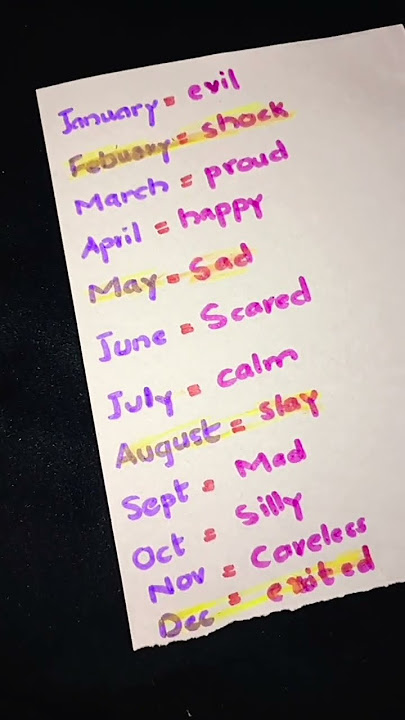 January = evil
Febuary = shock
March = proud
April = happy
May = Sad
June = Scared
July = calm
August = slay
Sept = Mad
Oct = Silly
Nov = Careless
Dec = exited